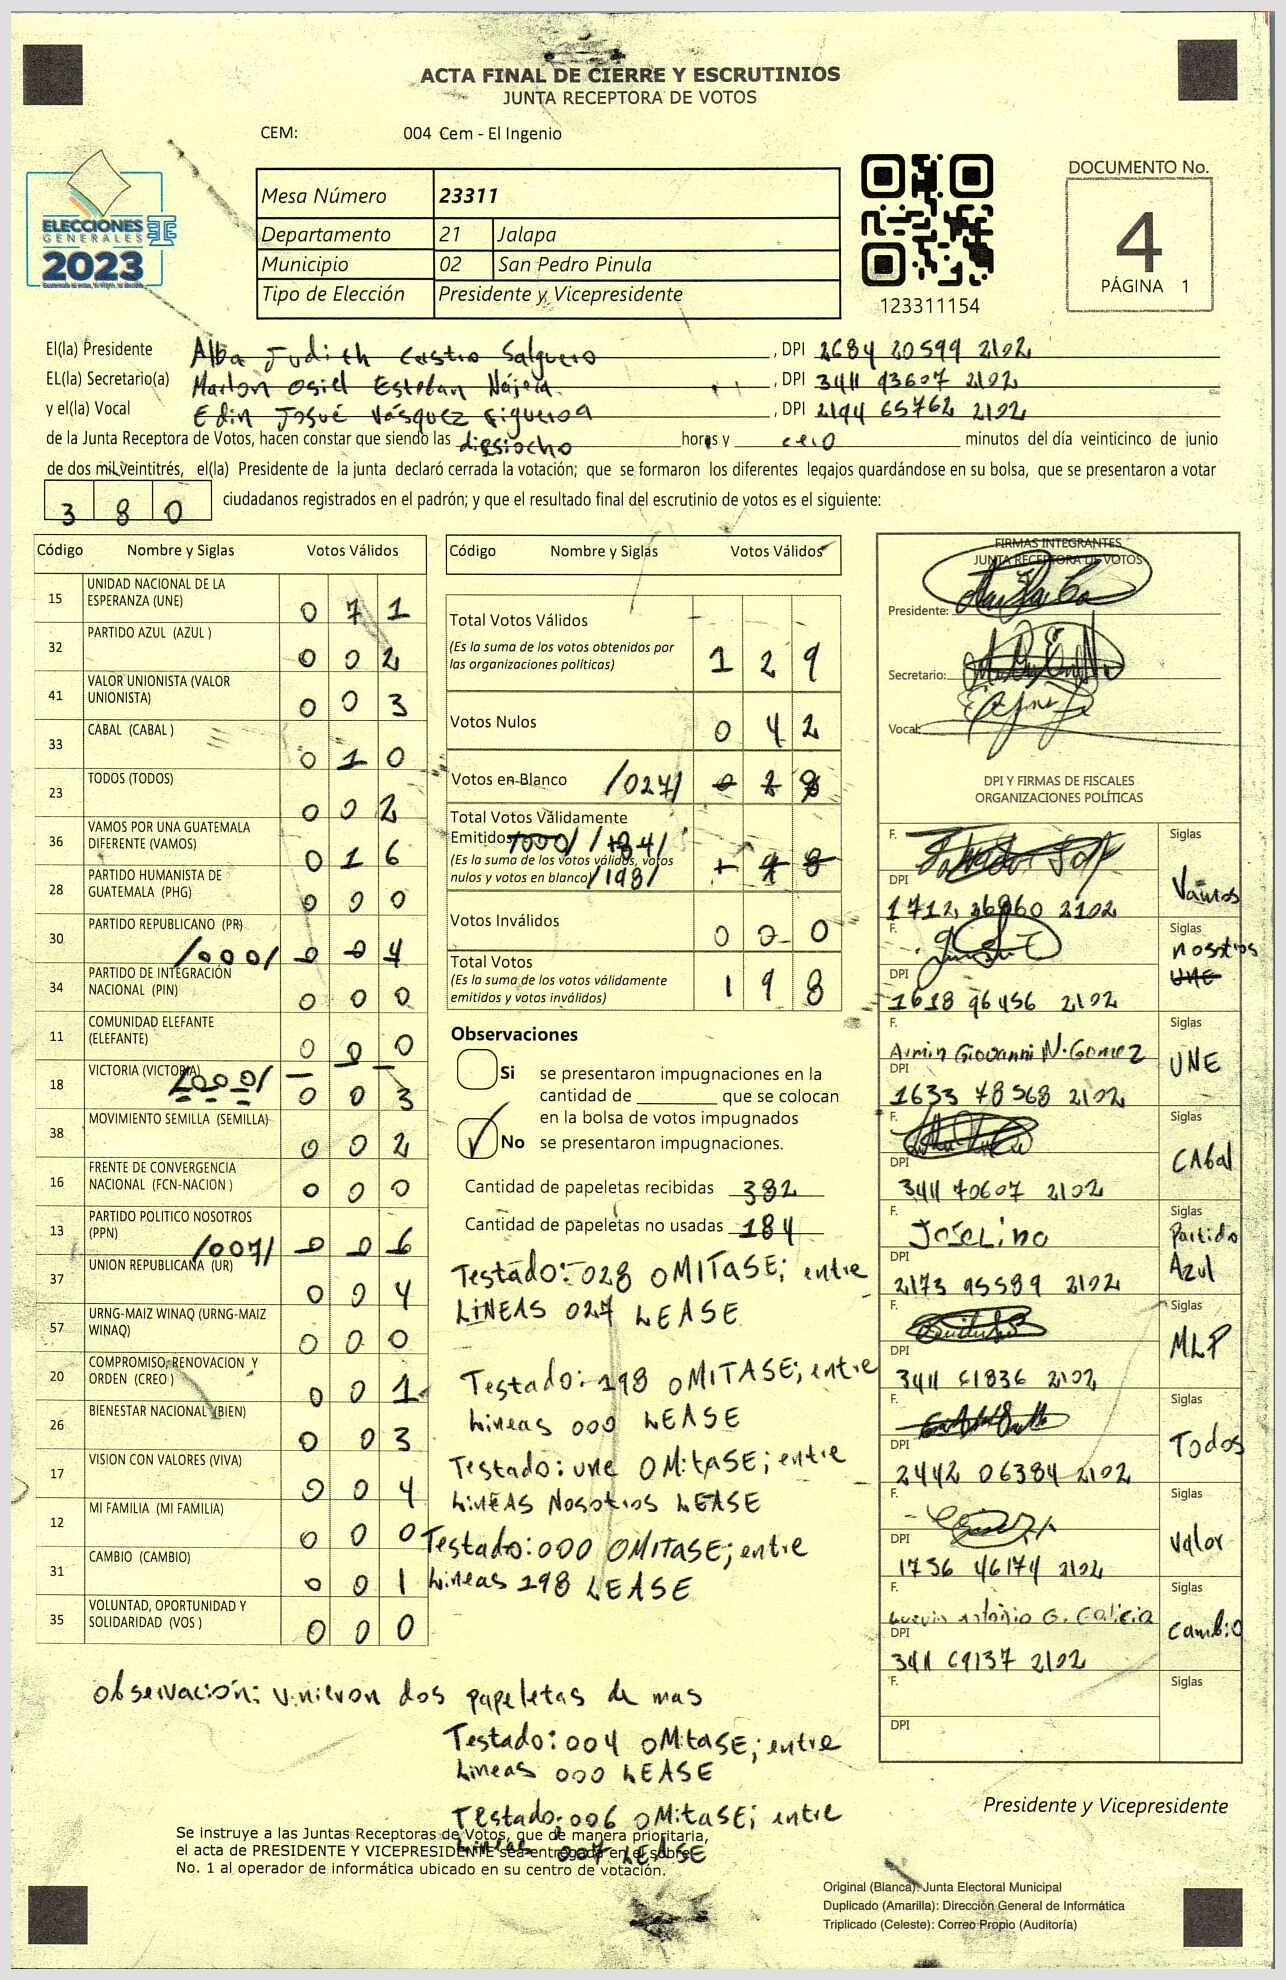 ACTA FINAL DE CIERRE Y ESCRUTINIOS
JUNTA RECEPTORA DE VOTOS
CEM: 004 Cem - El Ingenio
ELECCIONES
GENERALES
2023
Mesa Número 23311
Departamento 21 Jalapa
Municipio 02 San Pedro Pinula
Tipo de Elección Presidente y Vicepresidente
123311154
DOCUMENTO No.
4
PÁGINA 1
El(la) Presidente Alba Judith Castro Salguero , DPI 2684 20599 2102
EL(la) Secretario(a) Marlon Osiel Esteban Nájera , DPI 3411 93607 2102
y el(la) Vocal Edin Josué Vásquez Figueroa , DPI 2194 65762 2102
de la Junta Receptora de Votos, hacen constar que siendo las diesiocho horas y cero minutos del día veinticinco de junio
de dos mil veintitrés, el(la) Presidente de la junta declaró cerrada la votación; que se formaron los diferentes legajos quardándose en su bolsa, que se presentaron a votar
3 8 0 ciudadanos registrados en el padrón; y que el resultado final del escrutinio de votos es el siguiente:
Código Nombre y Siglas Votos Válidos
15 UNIDAD NACIONAL DE LA ESPERANZA (UNE) 0 7 1
32 PARTIDO AZUL (AZUL ) 0 0 2
41 VALOR UNIONISTA (VALOR UNIONISTA) 0 0 3
33 CABAL (CABAL ) 0 1 0
23 TODOS (TODOS) 0 0 2
36 VAMOS POR UNA GUATEMALA DIFERENTE (VAMOS) 0 1 6
28 PARTIDO HUMANISTA DE GUATEMALA (PHG) 0 0 0
30 PARTIDO REPUBLICANO (PR) /000/ 0 0 4
34 PARTIDO DE INTEGRACIÓN NACIONAL (PIN) 0 0 0
11 COMUNIDAD ELEFANTE (ELEFANTE) 0 0 0
18 VICTORIA (VICTORIA) /000/ 0 0 3
38 MOVIMIENTO SEMILLA (SEMILLA) 0 0 2
16 FRENTE DE CONVERGENCIA NACIONAL (FCN-NACION ) 0 0 0
13 PARTIDO POLITICO NOSOTROS (PPN) /007/ 0 0 6
37 UNION REPUBLICANA (UR) 0 0 4
57 URNG-MAIZ WINAQ (URNG-MAIZ WINAQ) 0 0 0
20 COMPROMISO, RENOVACION Y ORDEN (CREO ) 0 0 1
26 BIENESTAR NACIONAL (BIEN) 0 0 3
17 VISION CON VALORES (VIVA) 0 0 4
12 MI FAMILIA (MI FAMILIA) 0 0 0
31 CAMBIO (CAMBIO) 0 0 1
35 VOLUNTAD, OPORTUNIDAD Y SOLIDARIDAD (VOS ) 0 0 0
Código Nombre y Siglas Votos Válidos
Total Votos Válidos 1 2 9
(Es la suma de los votos obtenidos por
las organizaciones políticas)
Votos Nulos 0 4 2
Votos en Blanco /027/ 0 2 8
Total Votos Válidamente
Emitidos /000/ /184/
(Es la suma de los votos válidos, votos 1 9 8
nulos y votos en blanco) /198/
Votos Inválidos 0 0 0
Total Votos 1 9 8
(Es la suma de los votos válidamente
emitidos y votos inválidos)
Observaciones
Si se presentaron impugnaciones en la
cantidad de ________ que se colocan
en la bolsa de votos impugnados
No se presentaron impugnaciones.
Cantidad de papeletas recibidas 382
Cantidad de papeletas no usadas 184
Testado: 028 OMITASE; entre
LINEAS 027 LEASE
Testado: 198 OMITASE; entre
Lineas 000 LEASE
Testado: une OMitASE; entre
LinEAS Nosotros LEASE
Testado: 000 OMITASE; entre
Lineas 198 LEASE
observacion: vinieron dos papeletas de mas
Testado: 004 OMitASE; entre
Lineas 000 LEASE
Testado: 006 OMitASE; entre
Lineas 007 LEASE
FIRMAS INTEGRANTES
JUNTA RECEPTORA DE VOTOS
Presidente:
Secretario:
Vocal:
DPI Y FIRMAS DE FISCALES
ORGANIZACIONES POLÍTICAS
F. Siglas
DPI Vamos
1712 36860 2102
F. Siglas
nosotros
DPI UNE
1618 96456 2102
F. Siglas
Armin Giovanni N. Gomez UNE
DPI
1633 78568 2102
F. Siglas
DPI CABal
3411 70607 2102
F. Siglas
JoseLino Partido
DPI Azul
2173 95589 2102
F. Siglas
DPI MLP
3411 61836 2102
F. Siglas
DPI Todos
2442 06384 2102
F. Siglas
DPI valor
1736 46174 2102
F. Siglas
Antonio G. Galicia cambio
DPI
3411 69137 2102
F. Siglas
DPI
Presidente y Vicepresidente
Se instruye a las Juntas Receptoras de Votos, que de manera prioritaria,
el acta de PRESIDENTE Y VICEPRESIDENTE sea entregada en el sobre
No. 1 al operador de informática ubicado en su centro de votación.
Original (Blanca): Junta Electoral Municipal
Duplicado (Amarilla): Dirección General de Informática
Triplicado (Celeste): Correo Propio (Auditoría)